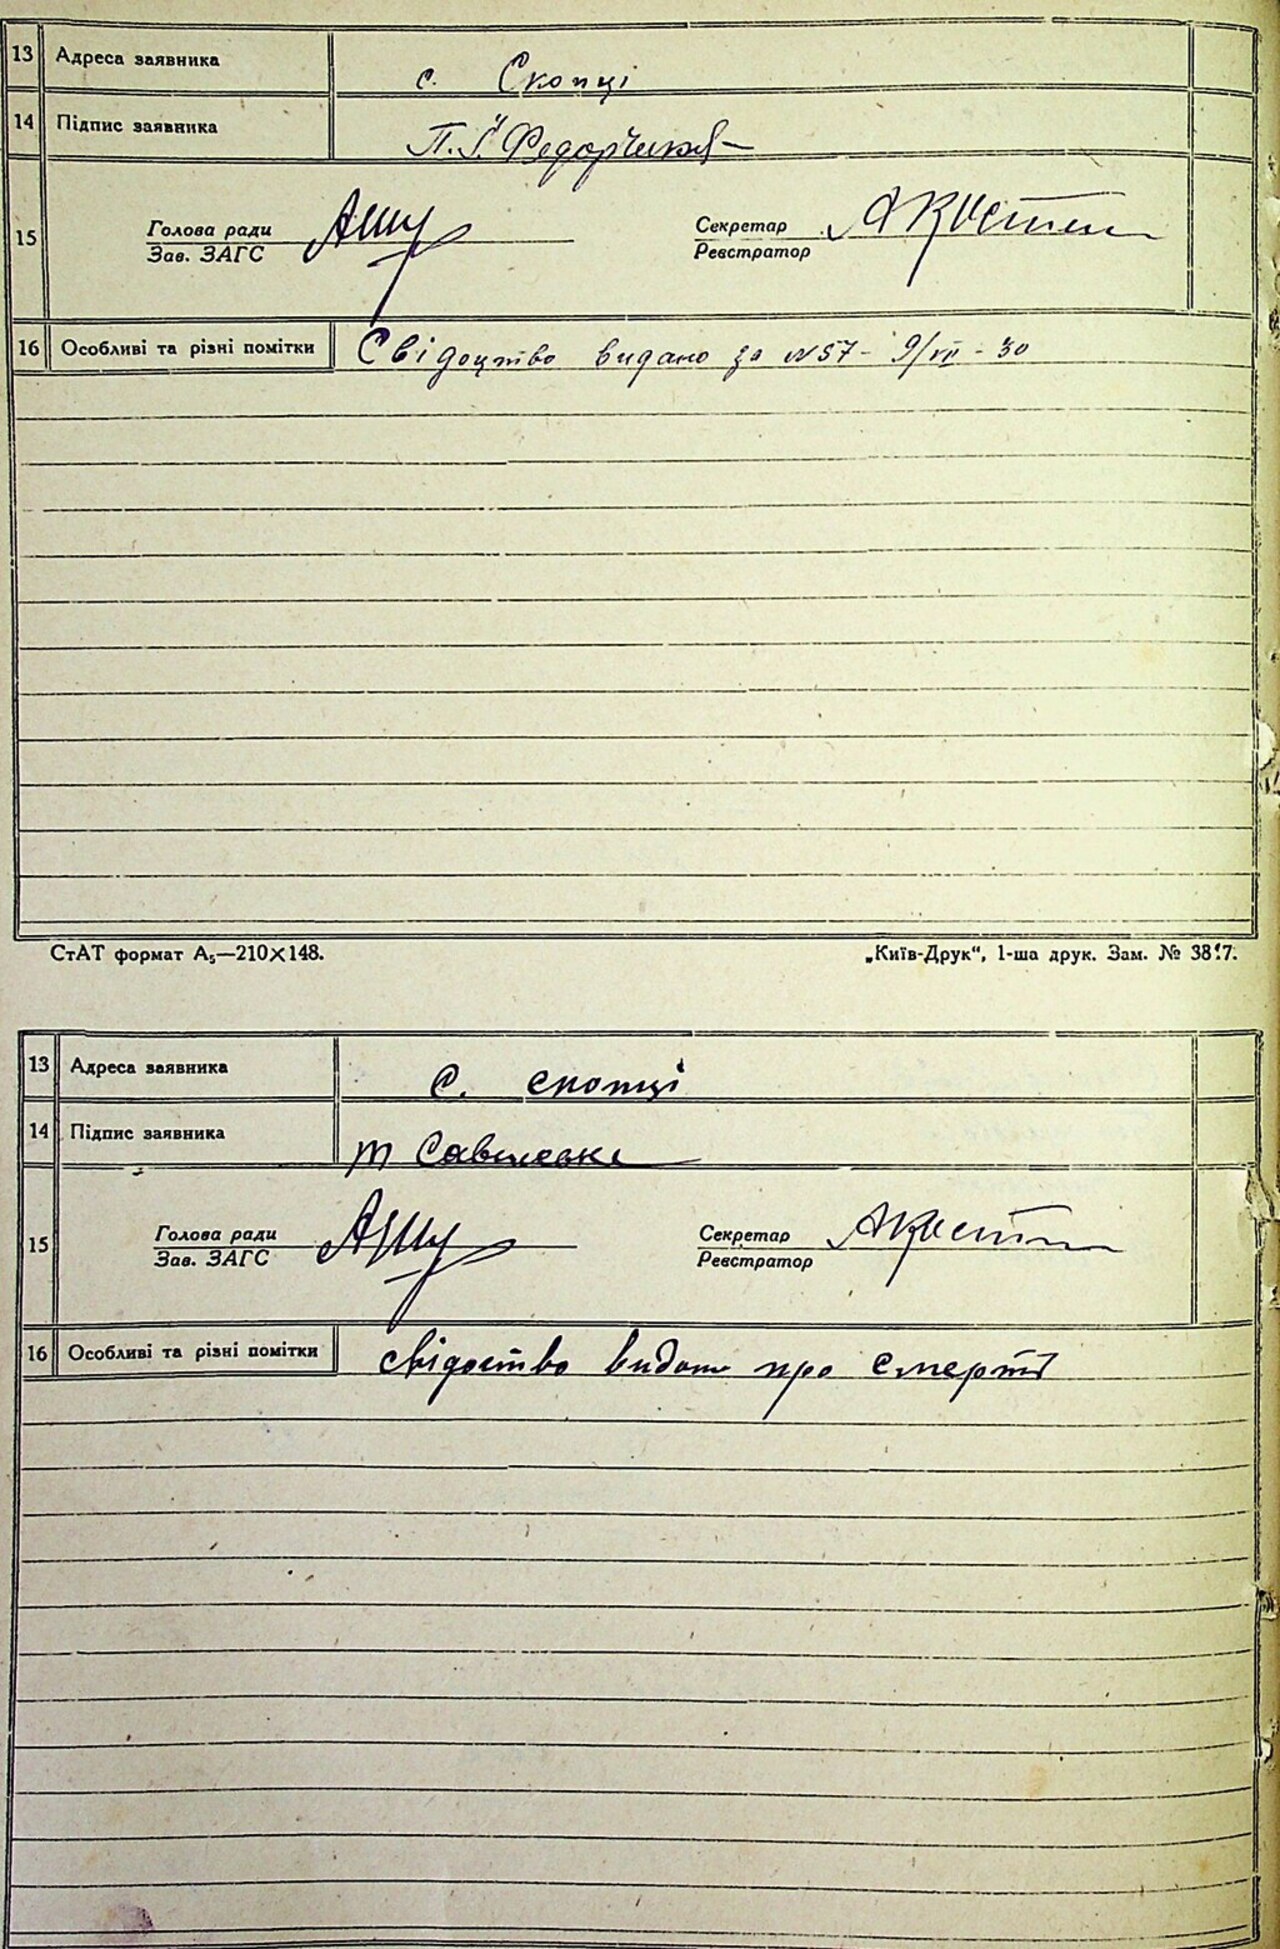 13 Адреса заявника с. Скопці
14 Підпис заявника П. І. Федорченко
15 Голова ради Секретар
Зав. ЗАГС Реєстратор
16 Особливі та різні помітки Свідоцтво видано за N57 - 9/VII - 30
СтАТ формат А₅—210×148. „Київ-Друк“, 1-ша друк. Зам. №
13 Адреса заявника с. скопці
14 Підпис заявника
15 Голова ради Секретар
Зав. ЗАГС Реєстратор
16 Особливі та різні помітки свідоство видано про смерть